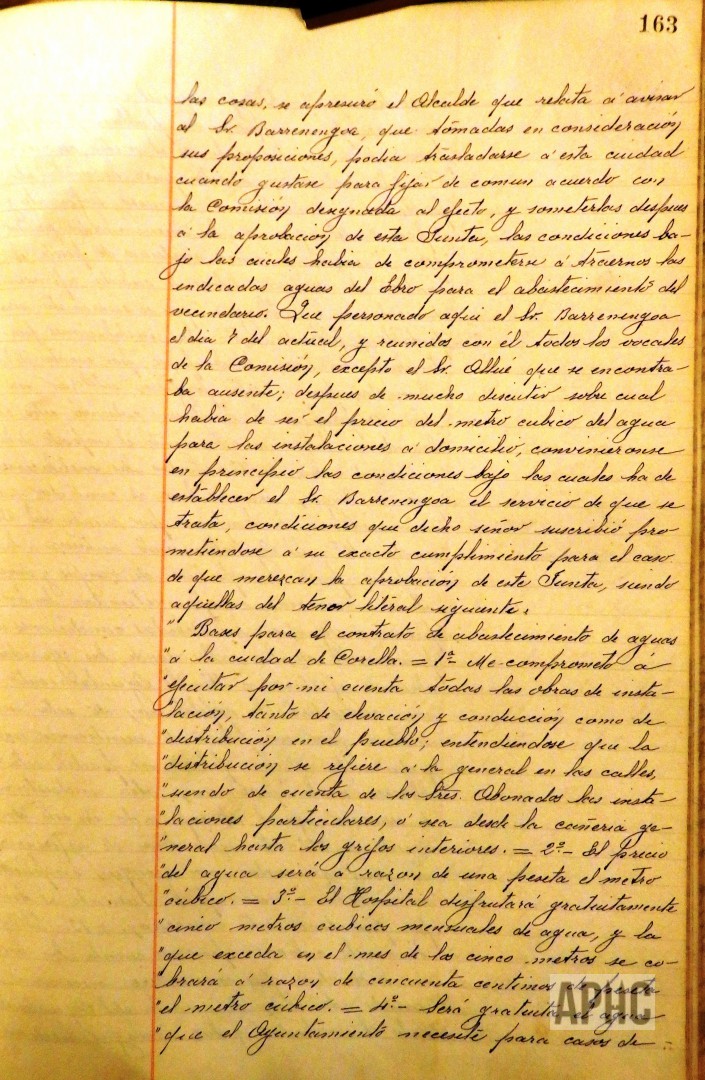 163
las cosas, se apresuró el Alcalde que relata á avisar
al Sr. Barrenengoa, que tomadas en consideración
sus proposiciones, podia trasladarse á esta ciudad
cuando gustase para fijar de comun acuerdo con
la Comisión designada al efecto, y someterlas despues
á la aprobación de esta Junta, las condiciones ba-
jo las cuales habia de comprometerse á traernos las
indicadas aguas del Ebro para el abastecimiento del
vecindario. Que personado aqui el Sr. Barrenengoa
el dia 7 del actual, y reunidos con él todos los vocales
de la Comisión, excepto el Sr. Allué que se encontra-
ba ausente; despues de mucho discutir sobre cual
habia de ser el precio del metro cubico del agua
para las instalaciones á domicilio, convinieronse
en principio las condiciones bajo las cuales ha de
establecer el Sr. Barrenengoa el servicio de que se
trata, condiciones que dicho señor suscribió pro-
metiéndose á su exacto cumplimiento para el caso
de que merezcan la aprobación de este Junta, siendo
aquellas del tenor literal siguiente:
" Bases para el contrato de abastecimiento de aguas
" á la ciudad de Corella. = 1ª- Me comprometo á
" ejecutar por mi cuenta todas las obras de insta-
" lación, tanto de elevación y conducción como de
" distribución en el pueblo; entendiendose que la
" distribución se refiere á la general en las calles,
" siendo de cuenta de los Sres. Abonados las insta-
" laciones particulares, ó sea desde la cañeria ge-
" neral hasta los grifos interiores. = 2ª- El precio
" del agua será á razon de una peseta el metro
" cúbico. = 3ª- El Hospital disfrutará gratuitamente
" cinco metros cubicos mensuales de agua, y la
" que exceda en el mes de los cinco metros se co-
" brará á razon de cincuenta centimos de peseta
" el metro cúbico. = 4ª- Será gratuita el agua
" que el Ayuntamiento necesite para casos de
APHC